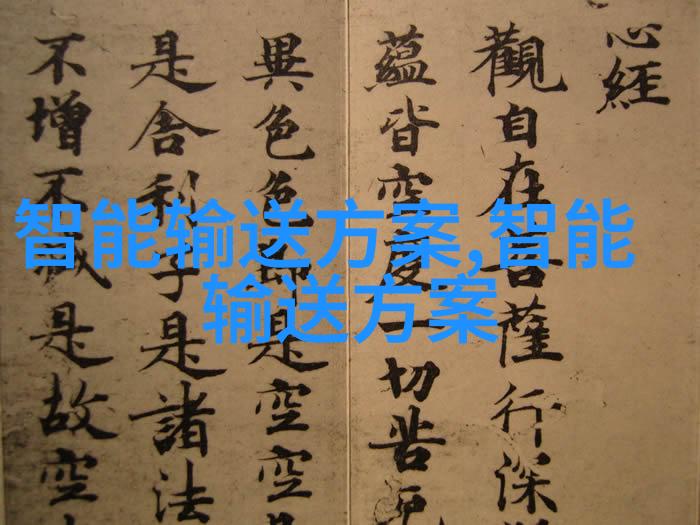 心經
觀自在菩薩行深
蘊皆空度一切苦厄
異色色即是空空
是舍利子是諸法
不增不減是故空
智能输送方案,智能
输送方案